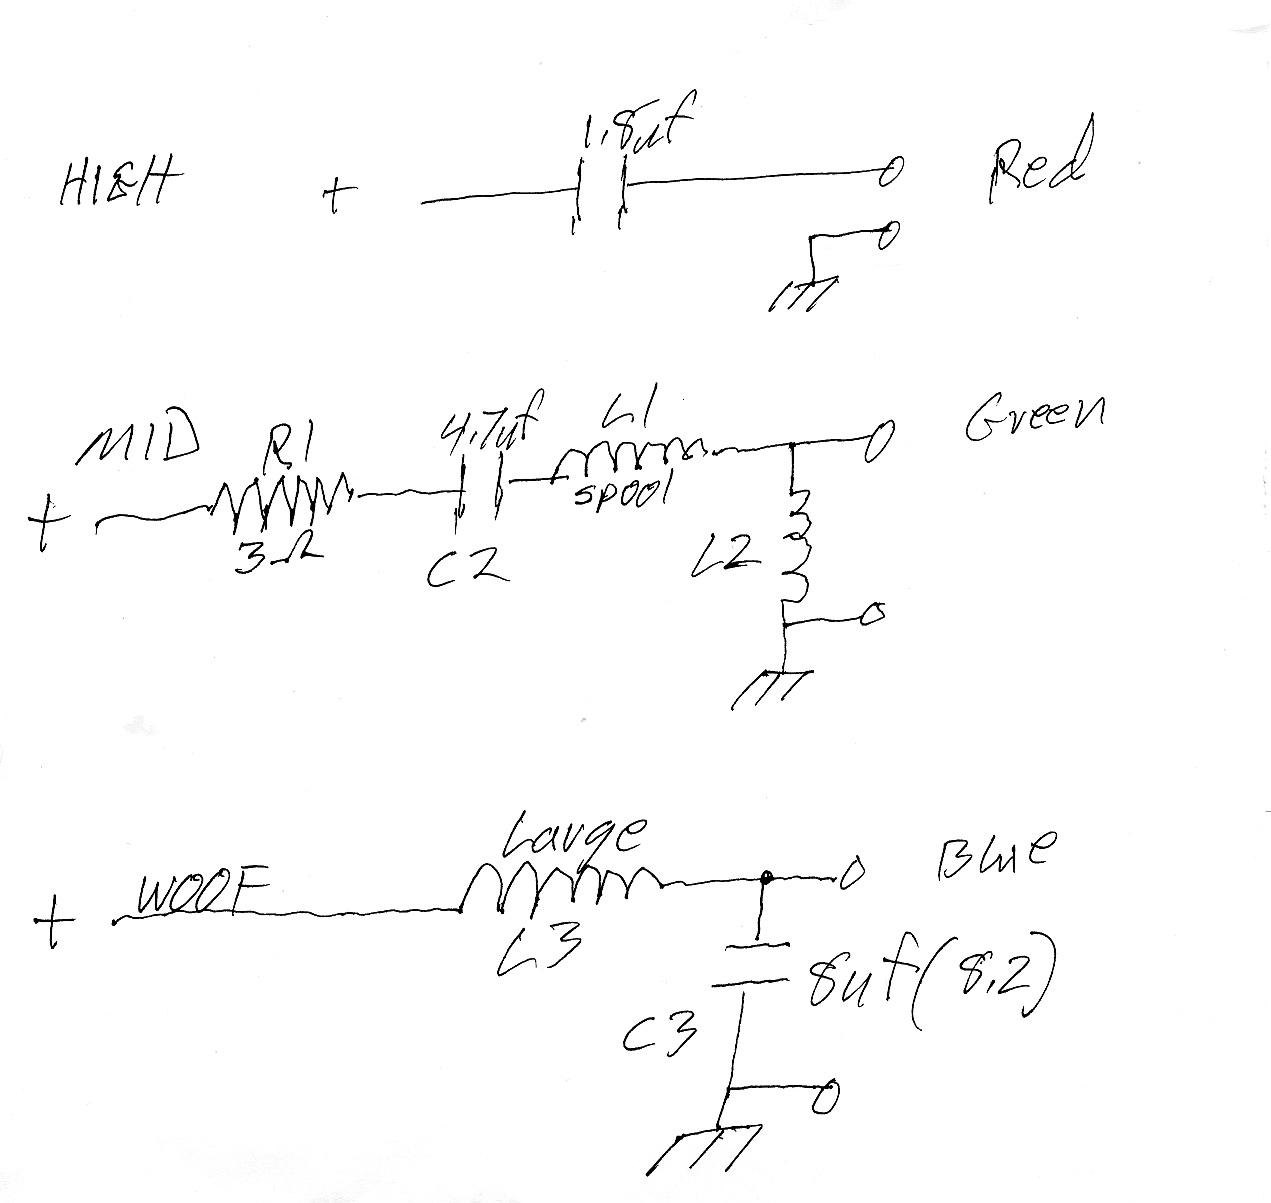 HIGH + 1.8uf Red
MID R1 4.7uf L1 Green
+ 3Ω C2 spool L2
Large Blue
+ WOOF L3 8uf (8.2)
C3